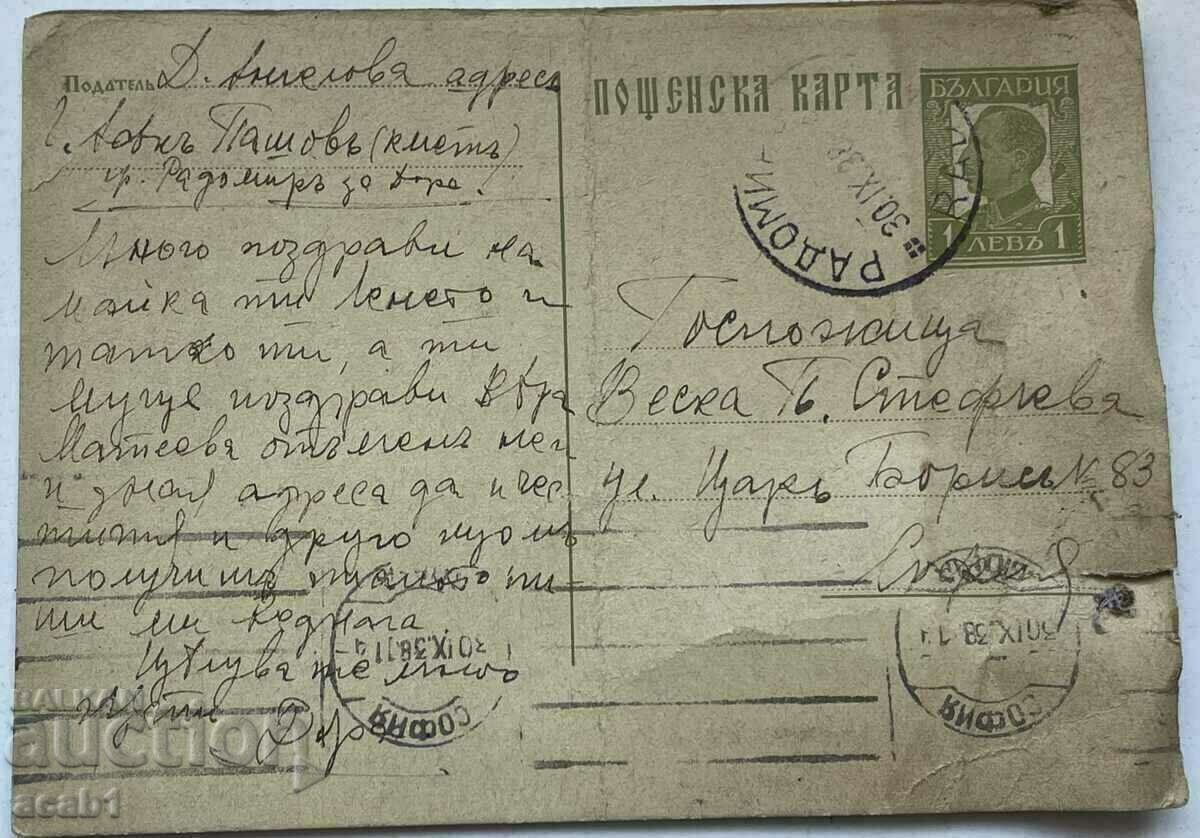 Податель Д. Ангелова адресъ
Пашовъ (кметъ)
гр. Радомиръ за Дора.
Много поздрави на
майка ти Ленето и
татко ти, а ти
муцце поздрави Вѣра
Матеева отъ менъ не
и зная адреса да и чес
титя и друго щомъ
получишъ писмото пи
ши ми веднага.
Цѣлува те много
Дора
ПОЩЕНСКА КАРТА
БЪЛГАРИЯ
1 ЛЕВЪ 1
РАДОМИ
30.IX.38
RAD
Госпожица
Веска П. Стефчева
ул. Царь Борисъ № 83
София
СОФИЯ
30.IX.38.11
СОФИЯ
30.IX.38.11
BALKAN
auction
acab1